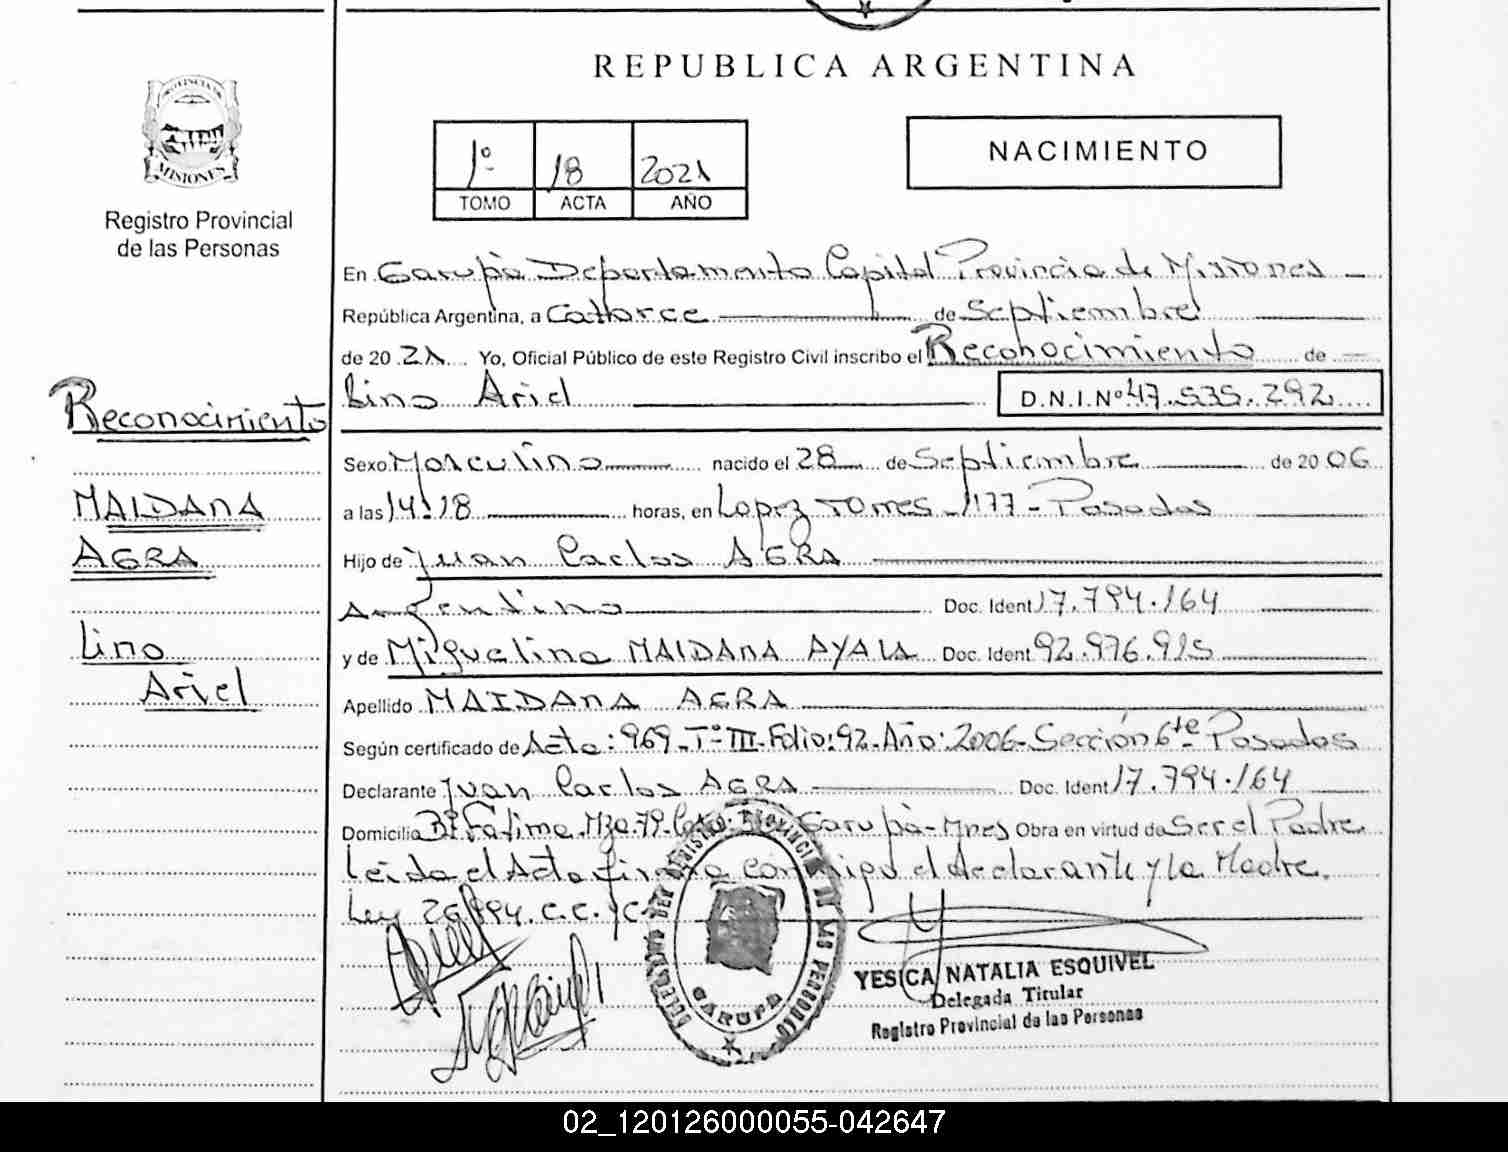 REPUBLICA ARGENTINA
PROVINCIA DE
MISIONES
Registro Provincial
de las Personas
1º 18 2021
TOMO ACTA AÑO
NACIMIENTO
En Garupà Departamento Capital Provincia de Misiones
República Argentina, a Catorce de Septiembre
de 20 21 Yo, Oficial Público de este Registro Civil inscribo el Reconocimiento de
Lino Ariel D.N.I.Nº 47.535.292
Reconocimiento
MAIDANA
AGRA
Lino
Ariel
Sexo Masculino nacido el 28 de Septiembre de 20 06
a las 14:18 horas, en Lopez Torres -1177- Posadas
Hijo de Juan Carlos AGRA
Argentino Doc. Ident 17.794.164
y de Miguelina MAIDANA AYALA Doc. Ident 92.976.915
Apellido MAIDANA AGRA
Según certificado de Acta: 969-Tº III-Folio: 92-Año: 2006-Sección 6te Posadas
Declarante Juan Carlos AGRA Doc. Ident 17.794.164
Domicilio Bº Fátima Mza 79 Garupà-Mnes Obra en virtud de Ser el Padre
Leida el Acta firma conmigo el declarante y la Madre.
Ley 26.994. C.C.
GARUPA
YESICA NATALIA ESQUIVEL
Delegada Titular
Registro Provincial de las Personas
02_120126000055-042647